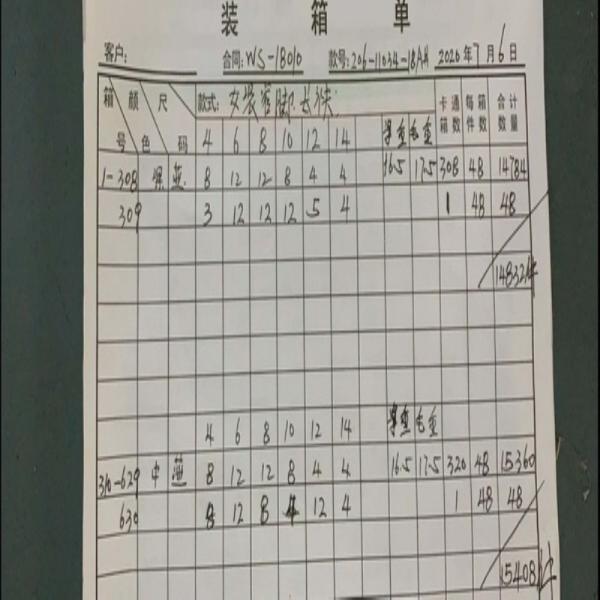 装箱单
客户: 合同: WS-18010 款号: 206-11034-18AH 2020年7月6日
箱号 颜色 尺码 款式: 女装 脚长 卡通箱数 每箱件数 合计数量
4 6 8 10 12 14 净重 毛重
1-308 8 12 12 8 4 4 16.5 17.5 308 48 14784
309 3 12 12 12 5 4 1 48 48
14832件
4 6 8 10 12 14 净重 毛重
310-629 中 8 12 12 8 4 4 16.5 17.5 320 48 15360
630 8 12 8 4 12 4 1 48 48
15408件